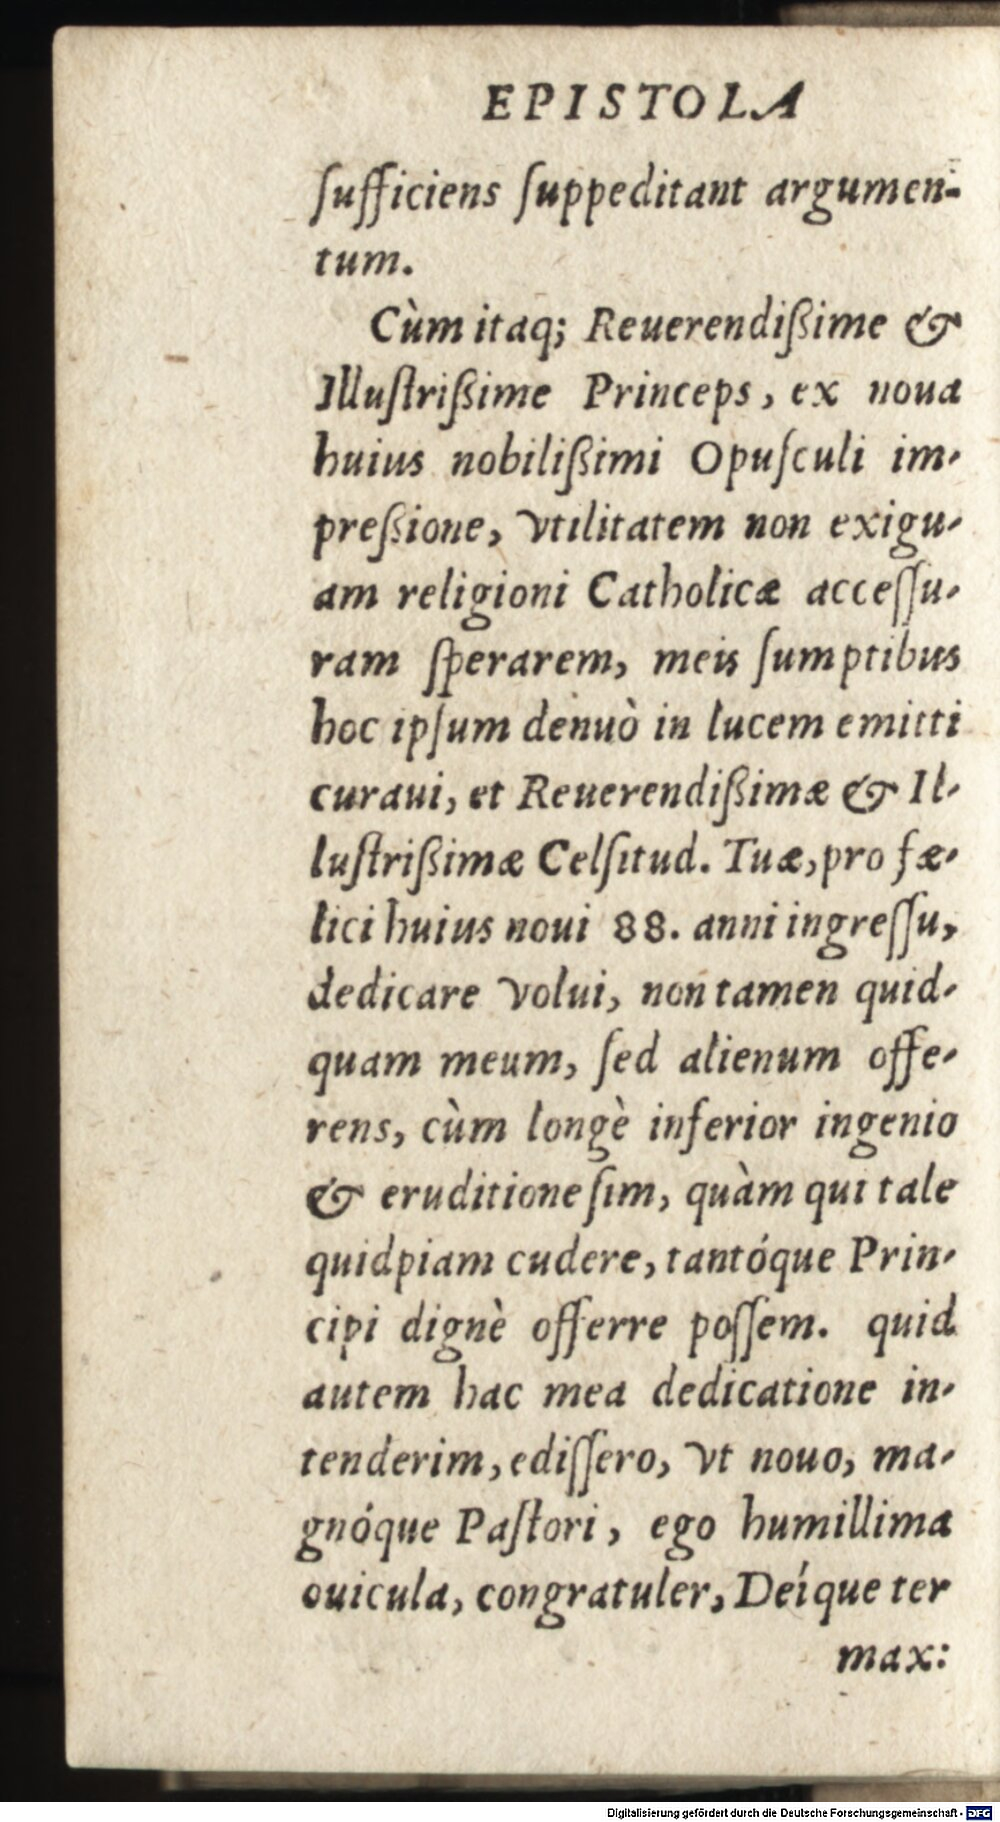 EPISTOLA
ſufficiens ſuppeditant argumen-
tum.
Cùm itaq; Reuerendiſsime &
Illuſtriſsime Princeps, ex noua
huius nobiliſsimi Opuſculi im-
preſsione, vtilitatem non exigu-
am religioni Catholicæ acceſſu-
ram ſperarem, meis ſumptibus
hoc ipſum denuò in lucem emitti
curaui, et Reuerendiſsimæ & Il-
luſtriſsimæ Celſitud. Tuæ, pro fæ-
lici huius noui 88. anni ingreſſu,
dedicare volui, non tamen quid-
quam meum, ſed alienum offe-
rens, cùm longè inferior ingenio
& eruditione ſim, quàm qui tale
quidpiam cudere, tantóque Prin-
cipi dignè offerre poſſem. quid
autem hac mea dedicatione in-
tenderim, ediſſero, vt nouo, ma-
gnóque Paſtori, ego humillima
ouicula, congratuler, Deíque ter
max:
Digitalisierung gefördert durch die Deutsche Forschungsgemeinschaft - DFG